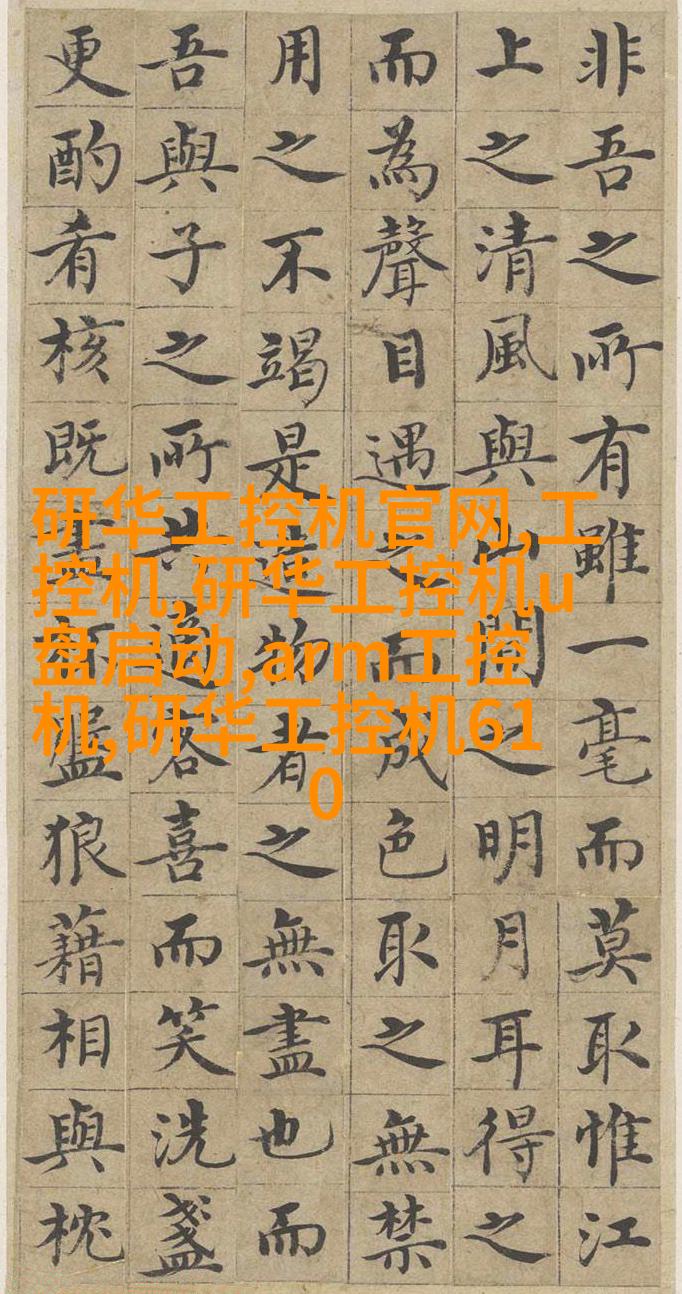 非吾之所有雖一毫而莫取惟江
上之清風與山間之明月耳得之
而為聲目遇之而成色取之無禁
用之不竭是造物者之無盡也而
吾與子之所共適客喜而笑洗盞
更酌肴核既盡杯盤狼藉相與枕
研华工控机官网,工
控机,研华工控机u
盘启动,arm工控
机,研华工控机61
0